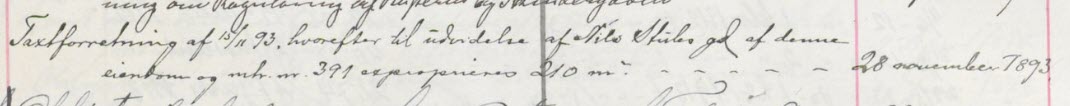 ning om Regulering af
Taxtforretning af 15/11 93, hvorefter til udvidelse af Nils Stubs gd af denne
eiendom og mtr. nr. 391 exproprieres 210 m². - - - - - 28 november 1893